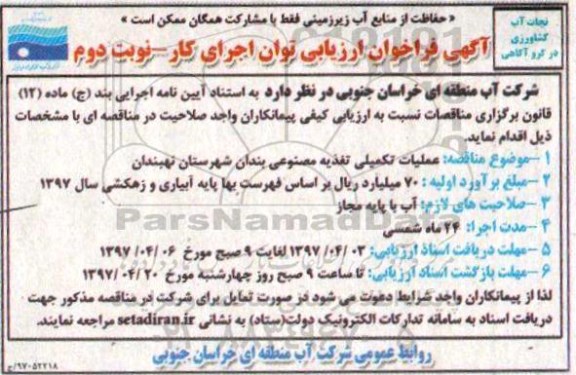 « حفاظت از منابع آب زیرزمینی فقط با مشارکت همگان ممکن است »
نجات آب
کشاورزی
در گرو آگاهی
آگهی فراخوان ارزیابی توان اجرای کار - نوبت دوم
شرکت آب منطقه ای خراسان جنوبی در نظر دارد به استناد آیین نامه اجرایی بند (ج) ماده (۱۲)
قانون برگزاری مناقصات نسبت به ارزیابی کیفی پیمانکاران واجد صلاحیت در مناقصه ای با مشخصات
ذیل اقدام نماید.
۱ -موضوع مناقصه: عملیات تکمیلی تغذیه مصنوعی بندان شهرستان نهبندان
۲ -مبلغ برآورد اولیه : ۷۰ میلیارد ریال بر اساس فهرست بها پایه آبیاری و زهکشی سال ۱۳۹۷
۳ -صلاحیت های لازم: آب با پایه مجاز
۴ -مدت اجرا: ۲۴ ماه شمسی
۵ -مهلت دریافت اسناد ارزیابی: ۰۳ /۰۴/ ۱۳۹۷ لغایت ۹ صبح مورخ ۰۶ /۰۴/ ۱۳۹۷
۶ -مهلت بازگشت اسناد ارزیابی: تا ساعت ۹ صبح روز چهارشنبه مورخ ۲۰ /۰۴ /۱۳۹۷
لذا از پیمانکاران واجد شرایط دعوت می شود در صورت تمایل برای شرکت در مناقصه مذکور جهت
دریافت اسناد به سامانه تدارکات الکترونیک دولت(ستاد) به نشانی setadiran.ir مراجعه نمایند.
روابط عمومی شرکت آب منطقه ای خراسان جنوبی
۹۷۰۵۲۲۱۸/ج
ParsNamadData